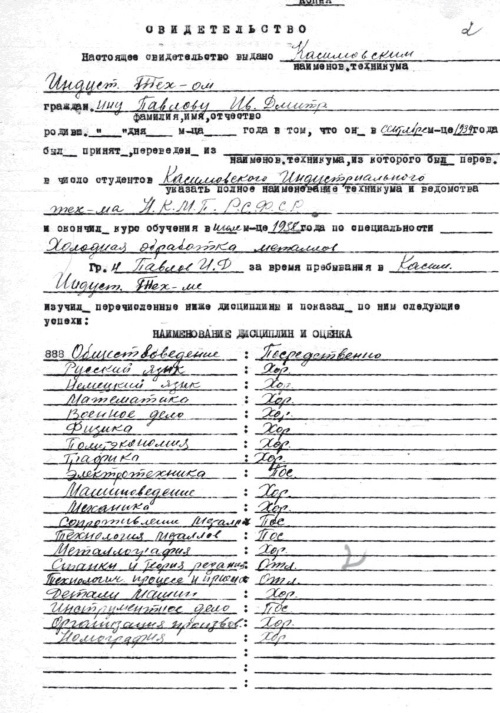 КОПИЯ
2
СВИДЕТЕЛЬСТВО
Настоящее свидетельство выдано Касимовским
наименов.техникума
Индуст. Тех-ом
граждан.ину Павлову Ив. Дмитр
фамилия,имя,отчество
родивш. " "дня м-ца года в том, что он в сентябре м-це года
был принят,переведен из
наименов.техникума,из которого был перев.
в число студентов Касимовского Индустриального
указать полное наименование техникума и ведомства
тех-ма Н.К.М.П. Р.С.Ф.С.Р.
и окончил курс обучения в июле м-це 1938 года по специальности
Холодная обработка металлов
Гр. н Павлов И.Д за время пребывания в Касим.
Индуст. Тех-ме
изучил перечисленные ниже дисциплины и показал по ним следующие
успехи:
НАИМЕНОВАНИЕ ДИСЦИПЛИН И ОЦЕНКА
Обществоведение : Посредственно
Русский язык : Хор.
Немецкий язык : Хор.
Математика : Хор.
Военное дело : Хор.
Физика : Хор
Политэкономия : Хор.
Графика : Хор.
Электротехника : Пос.
Машиноведение : Хор.
Механика : Хор.
Сопротивлении металл : Пос
Технология металлов : Пос
Металлография : Хор.
Станки и теория резания : Отл.
Технология процесса и : Отл.
Детали машин : Хор.
Инструментное дело : Пос
Организация произвов. : Хор.
Номография : Хор